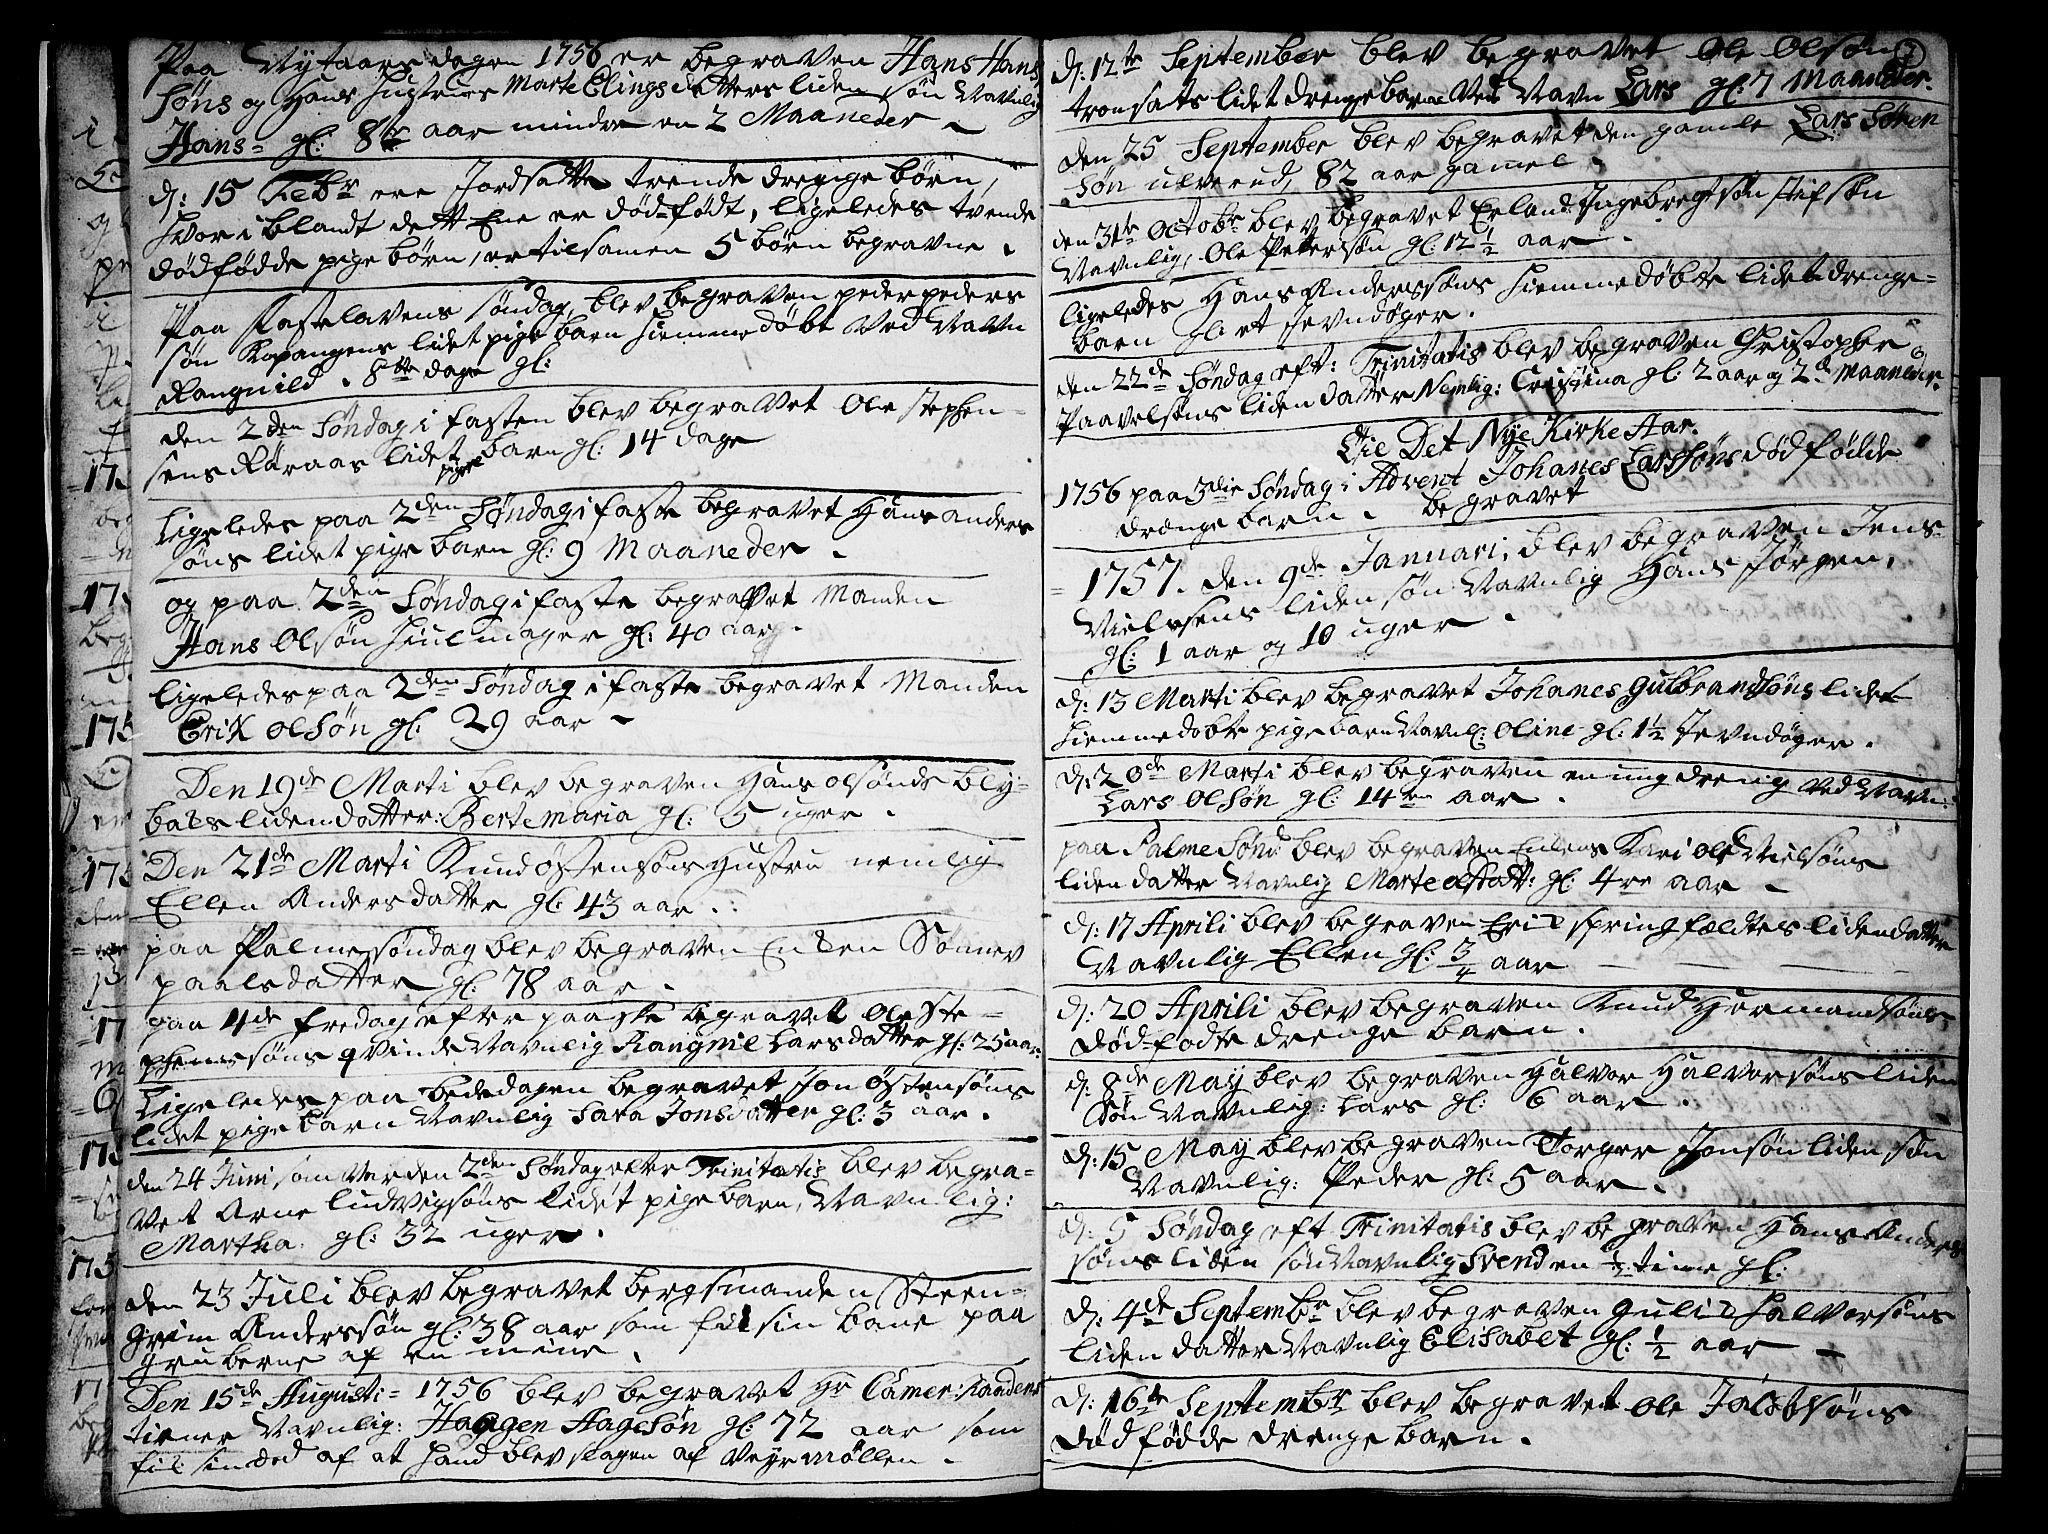 Paa Nytaars dagen 1756 er begraven Hans Hans
søns og Hans Hustrues Marte Elings datters liden søn Navnlig
Hans = gl: 8te aar mindre en 2 Maaneder
d: 15 Febr ere Jordsatte trende drenge børn,
hvor i blandt dett Ene er dødfødt, ligeledes tvende
dødfødde pige børn, er tilsamen 5 børn begravne.
Paa Fastelavens Søndag, blev begraven peder peders
søn Kopangens lidet pige barn hiemme døbt Ved Navn
Rangnild. 8te dage gl:
den 2den Søndag i fasten blev begravet Ole Stephen-
sens Røraas lidet pige barn gl: 14 dage
Ligeledes paa 2den Søndag i faste begravet Hans anders
søns lidet pige barn gl: 9 Maaneder.
og paa 2den Søndag i faste begravet Manden
Hans Olsøn Hiulmager gl: 40 aar.
ligeledes paa 2den Søndag i faste begravet Manden
Erik Olsøn gl: 29 aar
Den 19de Marti blev begraven Hans olsønds Bly-
bals liden datter: Bertemaria gl: 5 uger.
Den 21de Marti Knud Østensøns Hustru nemlig
Ellen Anders datter gl: 43 aar.
paa Palme søndag blev begraven Enken Sønnev
paals datter gl: 78 aar.
paa 4de fredag efter paaske begravet Ole Ste-
phenssøns qvinde Navnlig Rangnil Larsdatter gl: 25 aar
Ligeledes paa bededagen begravet Jon Østensøns
lidet pige barn Navnlig Sara Jonsdatter gl: 3 aar.
den 24 Juni som var den 2den Søndag efter Trinitatis blev begra-
vet Arne ludvigsøns lidet pige barn, Navnlig:
Martha. gl: 32 uger.
den 23 Juli blev begravet bergsmanden Steen-
grim Anderssøn gl: 38 aar som fik sin bane paa
gruberne af en mine.
Den 15de Augusti = 1756 blev begravet Hr Camer: Raadens
tienner Navnlig: Haagen Aagesøn gl: 72 aar som
fik sin død af at hand blev slagen af Veyrmøllen.
d: 12te September blev begravet Ole Olsøn
tronsats lidet drenge barn Ved Navn Lars gl: 7 Maaneder.
den 25 September blev begravet den gamle Lars Søren
søn ulverud, 82 aar gamel.
den 31te Octobr blev begravet Erland Ingebregtsøn stifsøn
Navnlig, Ole Pettersøn gl: 12 1/2 aar.
ligeledes Hans Anderssøns hiemme døbte lidet drenge-
barn gl: et Jevndøger.
den 22de Søndag eft: Trinitatis blev begraven Christopher
Paavelsøns liden datter Nemlig: Cristina gl: 2 aar og 2de Maaneder.
Die Det Nye Kirke Aar.
1756 paa 3die Søndag i Advent Johanes Larssøns dødfødde
drænge barn. begravet
1757. den 9de Januari, blev begraven Jens
Nielssens liden søn Navnlig Hans Jørgen,
gl: 1 aar og 10 uger.
d: 13 Marti blev begravet Johanes Gulbrandsøns lidet
hiemmedøbte pige barn Navnl: Oline gl: 1 1/2 Jevndøger.
d: 20de Marti blev begraven en ung dreng Ved Navn:
Lars Olsøn gl: 14ten aar.
paa Palme Sønd: blev begraven Enkens Kari Ole Nielsøns
liden datter Navnlig Marte olsdatt: gl: 4re aar
d: 17 Aprili blev begraven Erik springfældtes liden datter
Navnlig Ellen gl: 3/4 aar
d: 20 Aprili blev begraven Knud Hermandsøns
dødfødte drenge barn.
d: 8de May blev begraven Halvor Halvorsøns liden
søn Navnlig: Lars gl: 6 aar.
d: 15 May blev begraven Torger Jonsøn liden søn
Navnlig: Peder gl: 5 aar.
d: 5 Søndag eft Trinitatis blev begraven Hans Anders
søns liden søn Navnlig Svend en 1/2: time gl:
d: 4de Septembr blev begraven Gulik Halvorsøns
liden datter Navnlig Elisabet gl: 1/2 aar
d: 16te Septembr blev begravet Ole Jacobsøns
dødfødde drenge barn.